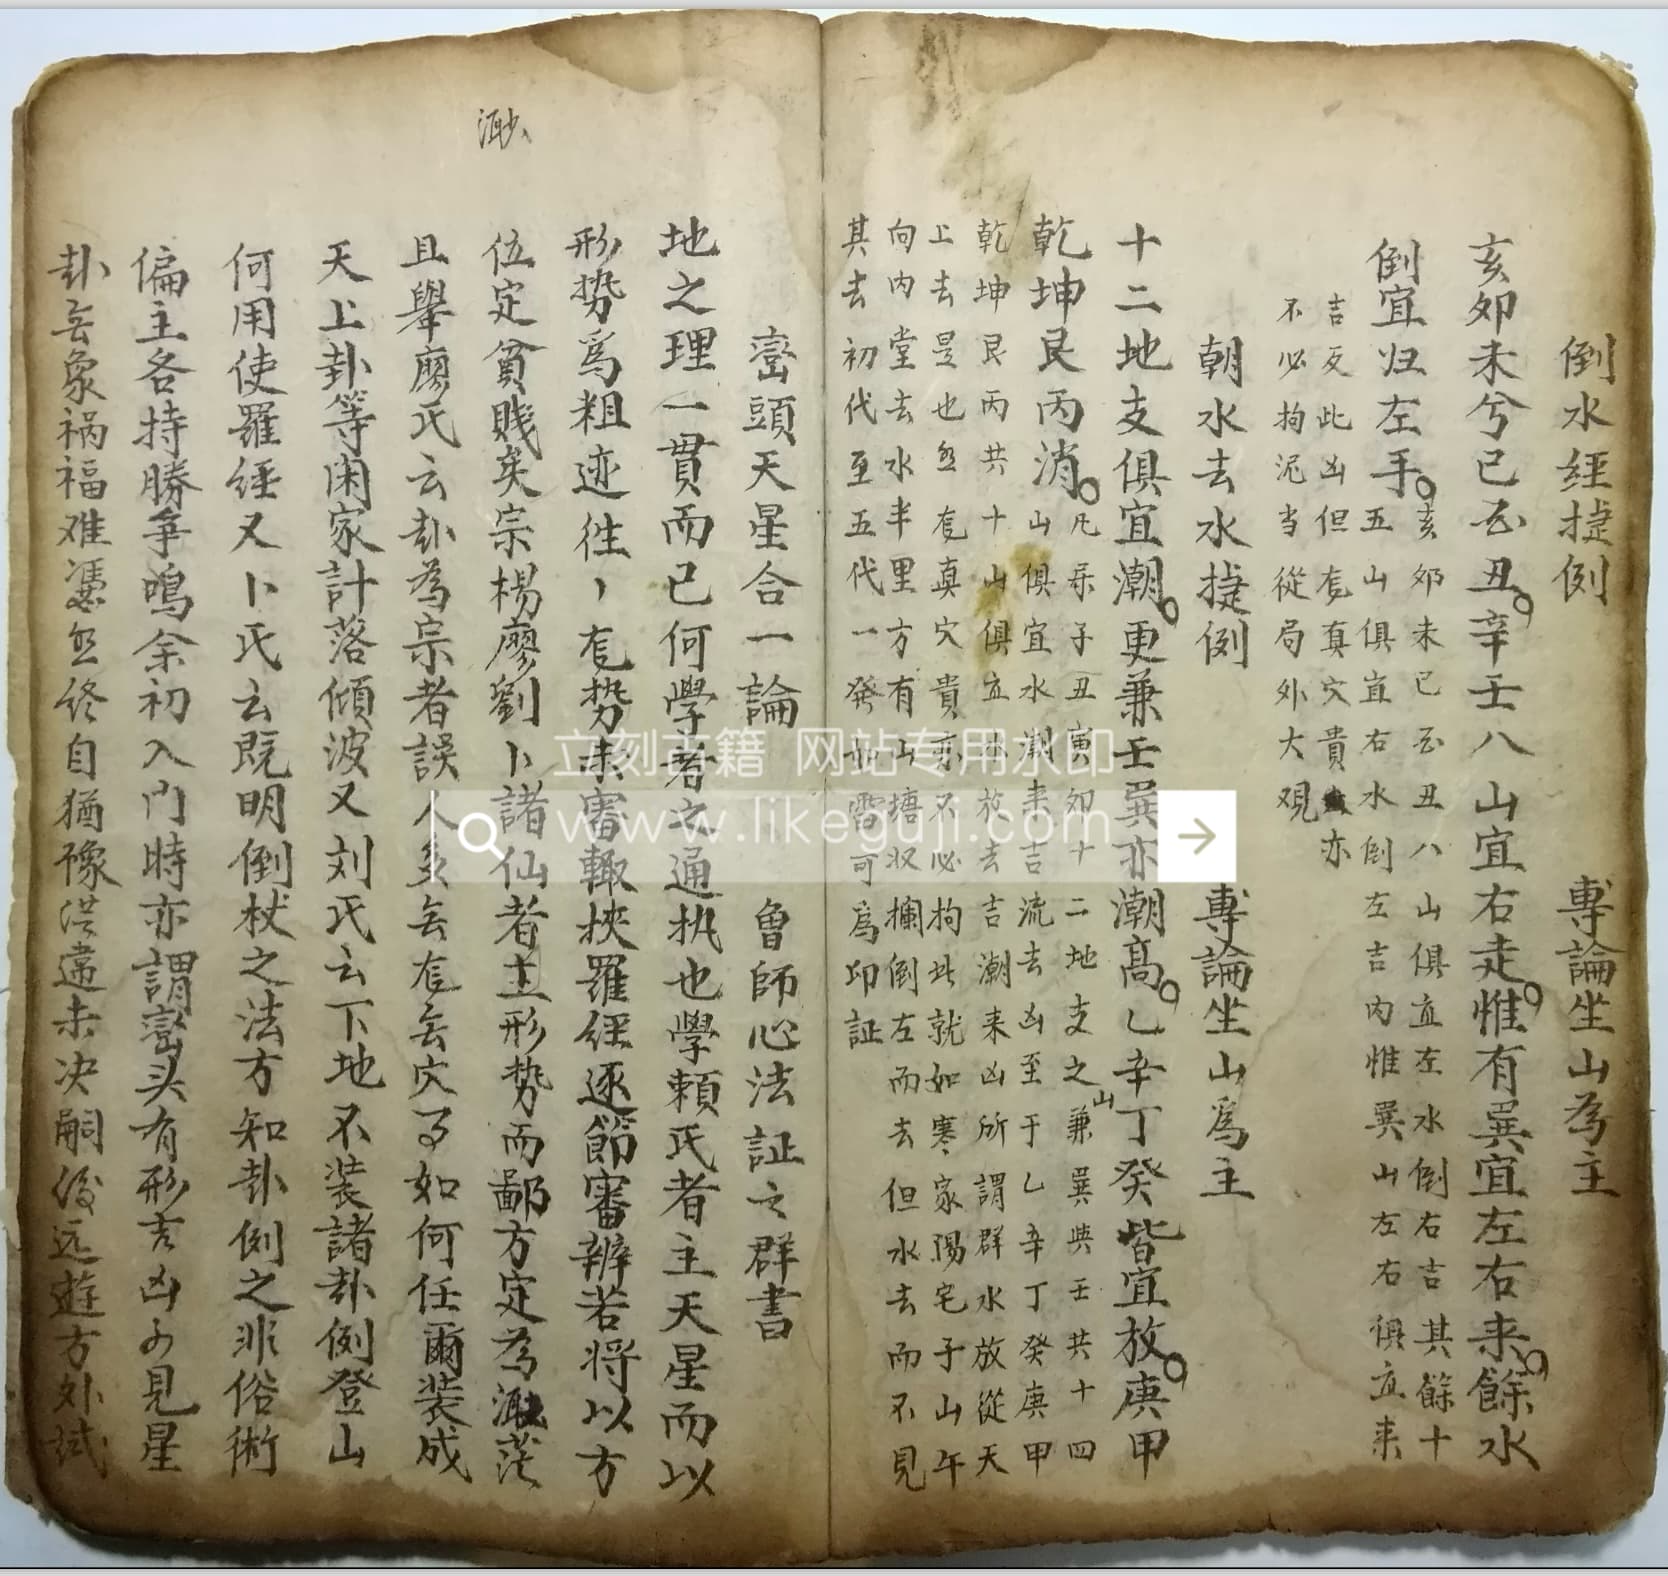 倒水經捷例 專論坐山為主
亥卯未兮巳酉丑辛壬八山宜右走惟有巽宜左右来餘水
倒宜归左手
亥卯未巳酉丑八山俱宜左水倒右吉其餘十
五山俱宜右水倒左吉内惟巽山左右俱宜来
吉反此凶但有真穴貴亦
不必拘泥当從局外大观
朝水去水捷例 專論坐山爲主
十二地支俱宜潮更兼壬巽亦潮高乙辛丁癸皆宜放庚甲
乾坤艮丙消
凡示子丑寅卯十二地支之山兼巽與壬共十四
山俱宜水潮来吉流去凶至于乙辛丁癸庚甲
乾坤艮丙共十山俱宜水放去吉潮来凶所謂群水放從天
上去是也然有真穴貴亦不必拘此就如寒家陽宅子山午
向内堂去水半里方有山塘収攔倒左而去但水去而不見
其去初代至五代一發如雷可爲印証
巒頭天星合一論 魯師心法証之群書
地之理一貫而已何學者之通执也學賴氏者主天星而以
形势爲粗迹徃丶有势未審輙挾羅經逐節審辨若将以方
位定貧賤矣宗楊廖劉卜諸仙者主形势而鄙方定為渺茫
渺
且舉廖氏云卦為宗者誤人多無有無穴了如何任爾装成
天上卦等閑家計落傾波又刘氏云下地不装諸卦例登山
何用使羅經又卜氏云既明倒杖之法方知卦例之非俗術
偏主各持勝争鳴余初入门時亦謂巒头有形吉凶可見星
卦無象祸福难憑然终自猶豫洪濛未决嗣後远遊方外試
立刻古籍 网站专用水印
www.likeguji.com